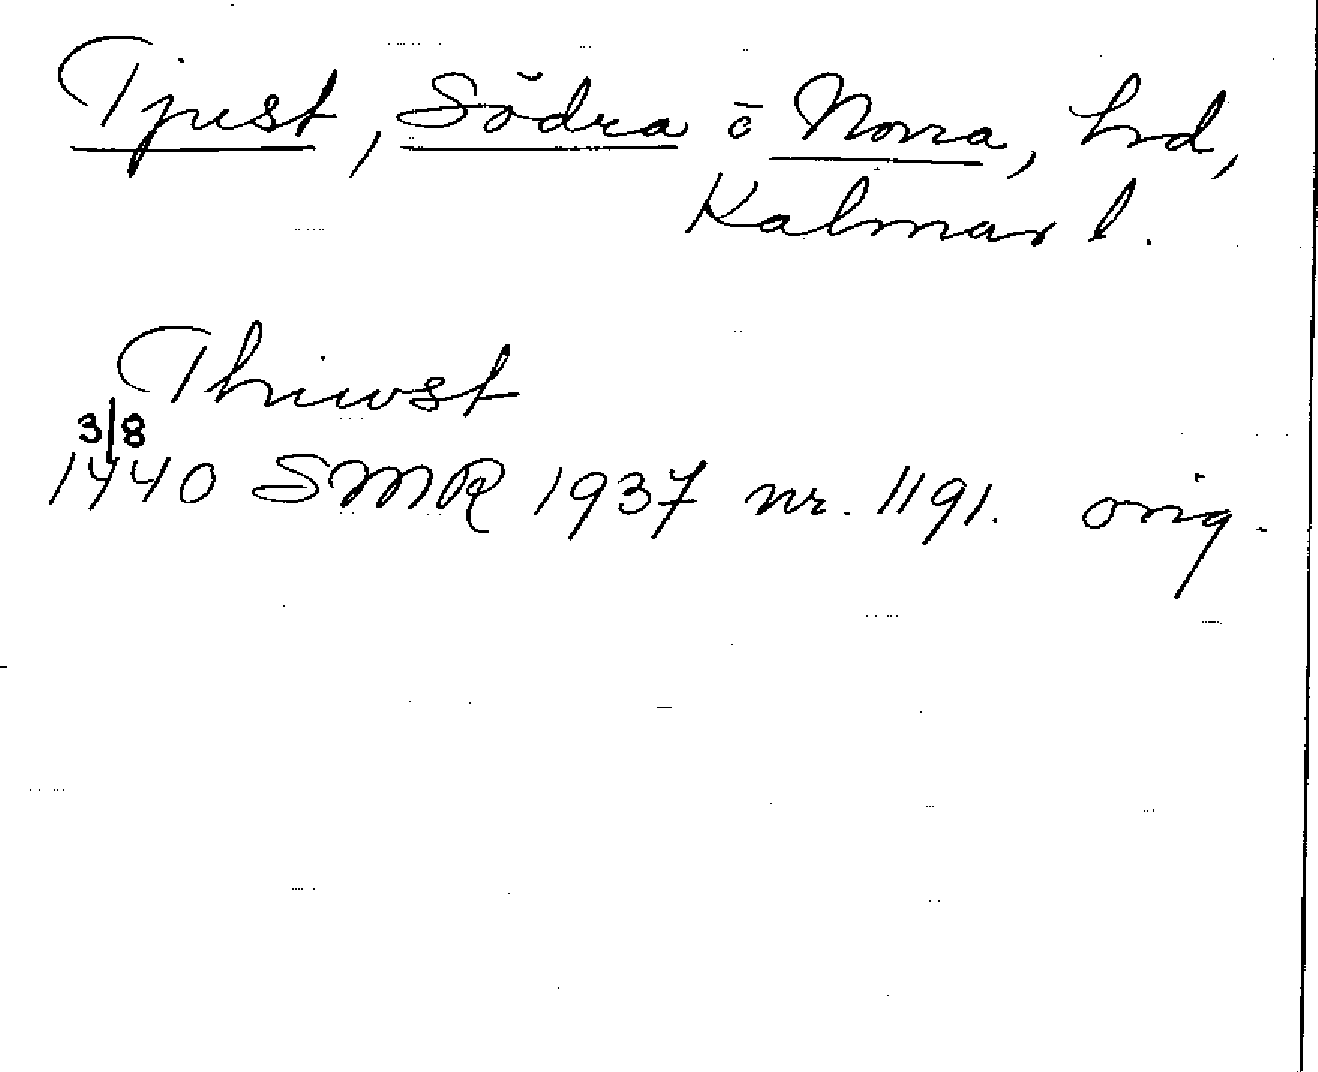 Tjust, Södra o Norra, hrd,
Kalmar l.
Thiwst
3/8
1440 SMR 1937 nr. 1191. orig.